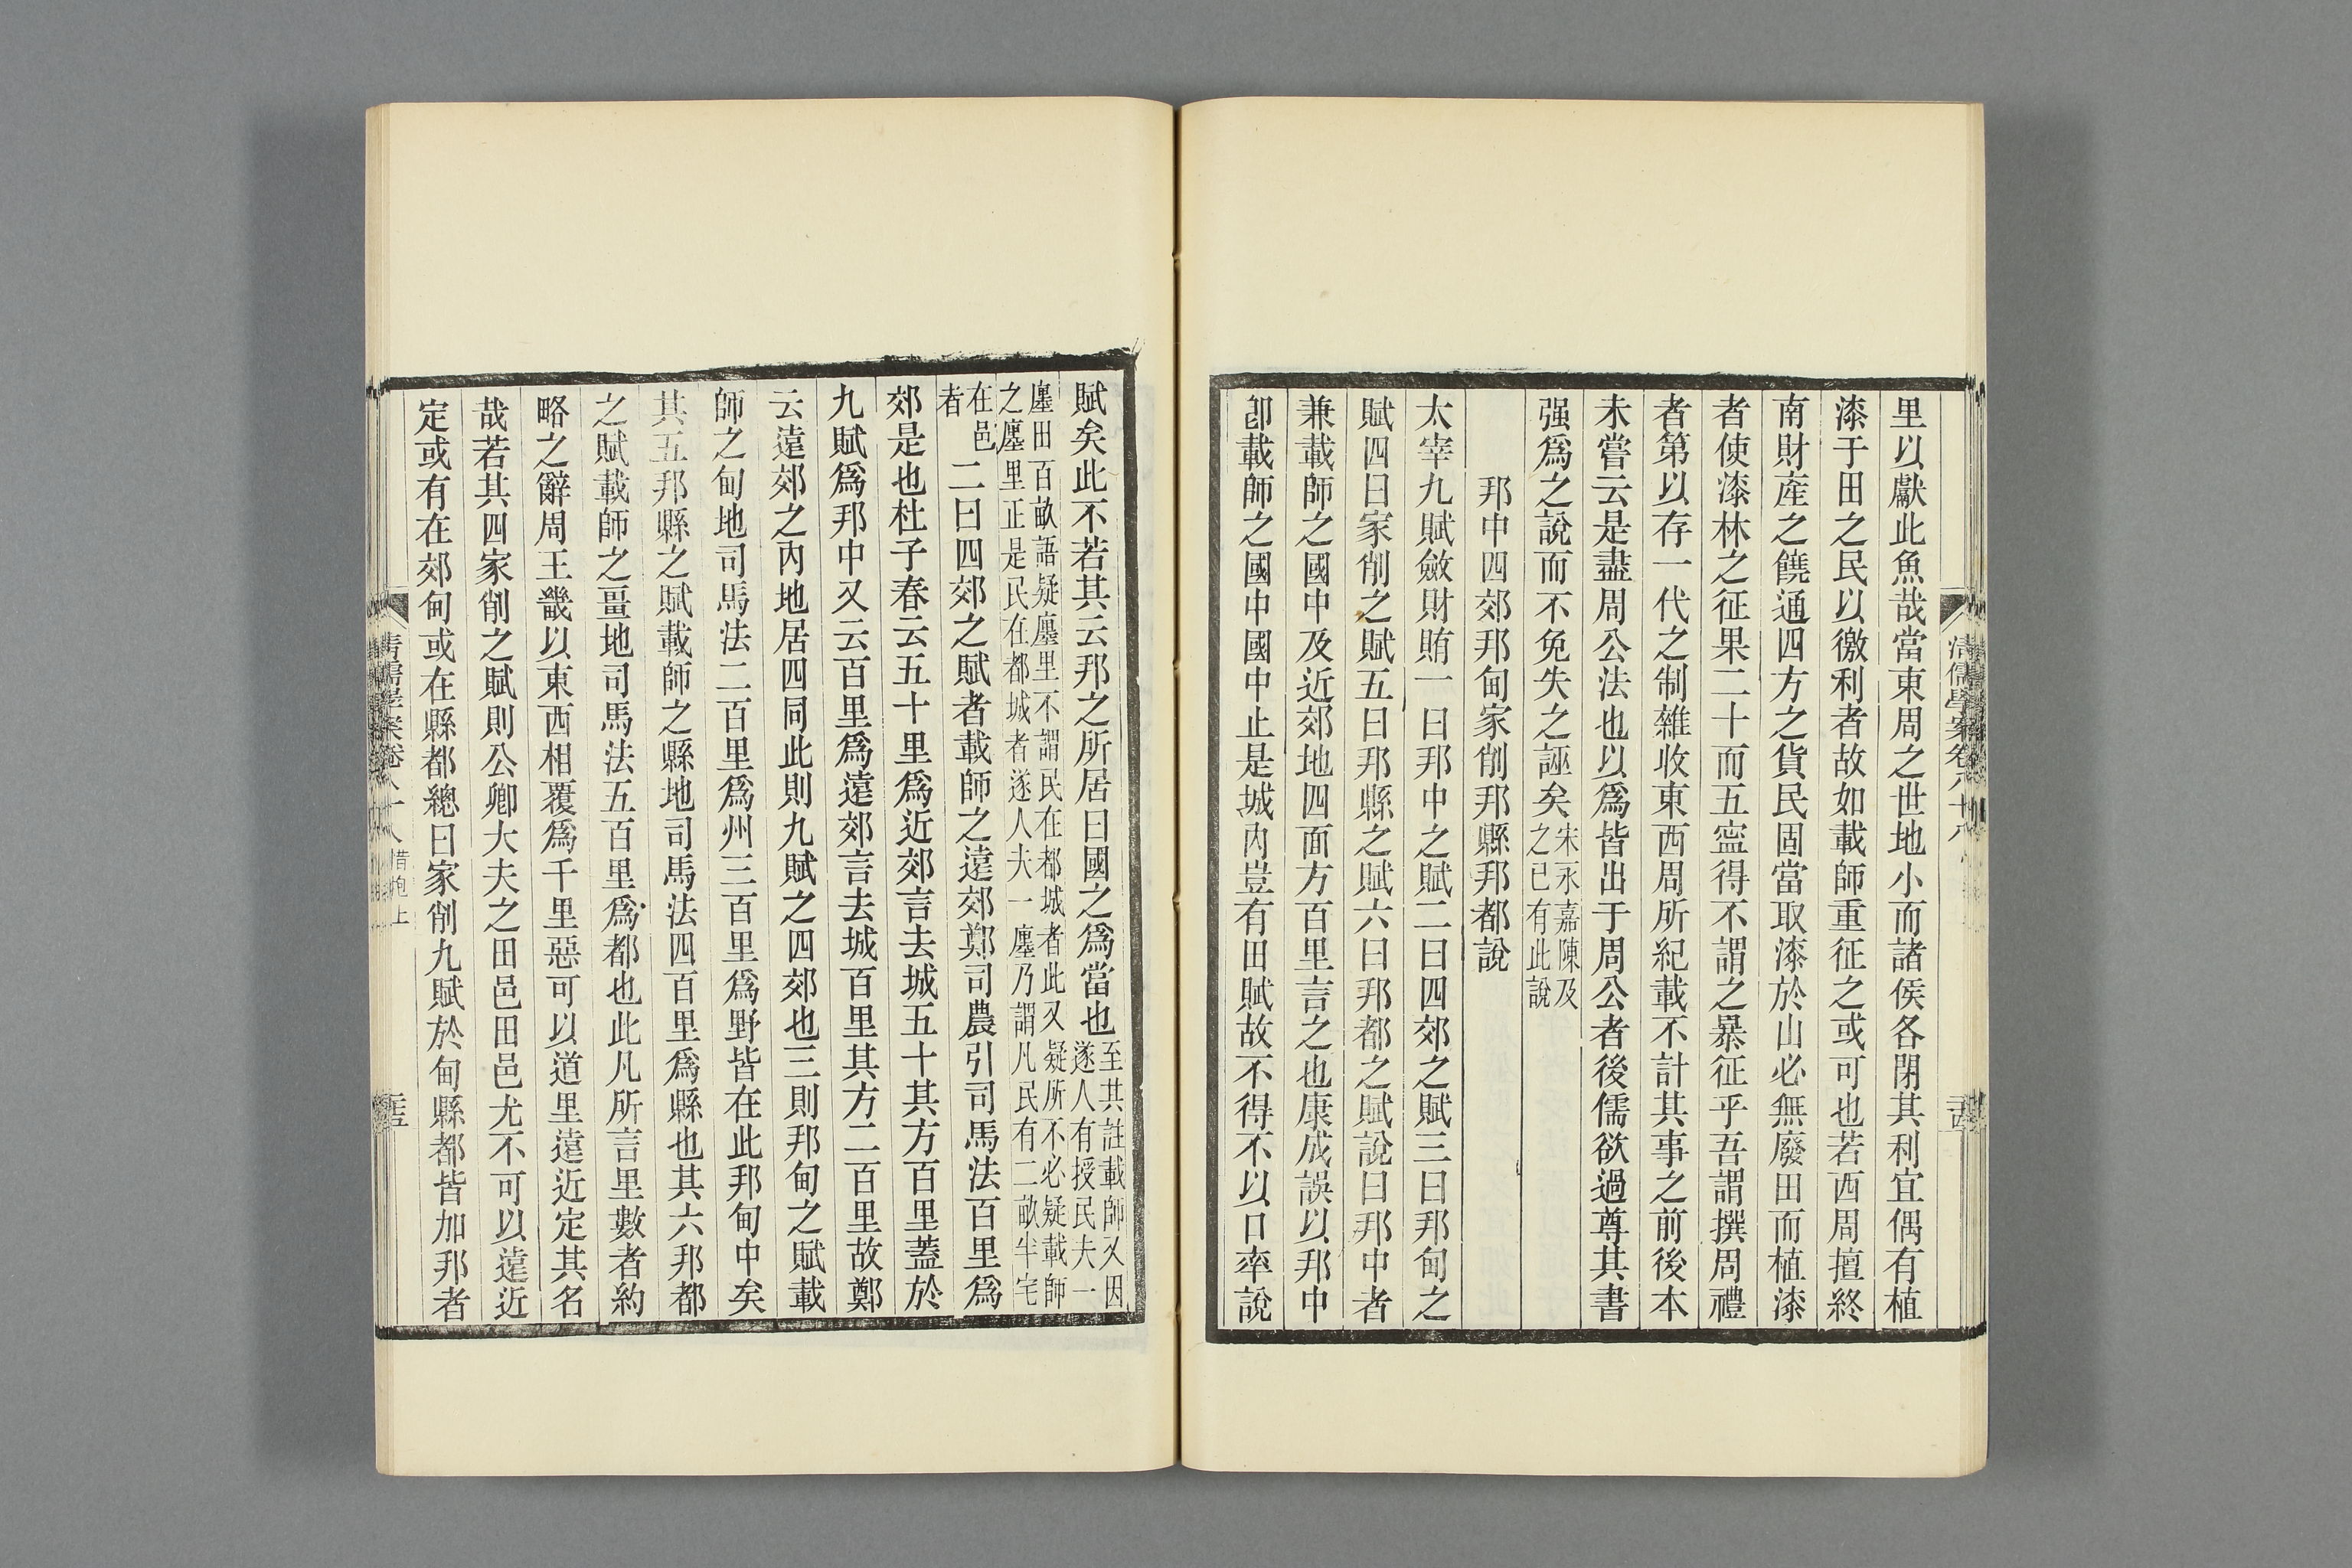 里以獻此魚哉當東周之世地小而諸侯各閉其利宜偶有植
漆于田之民以徼利者故如載師重征之或可也若西周擅終
南財產之饒通四方之貨民固當取漆於山必無廢田而植漆
者使漆林之征果二十而五寍得不謂之暴征乎吾謂撰周禮
者第以存一代之制雜收東西周所紀載不計其事之前後本
未嘗云是盡周公法也以爲皆出于周公者後儒欲過尊其書
强爲之說而不免失之誣矣宋永嘉陳及之已有此說
邦中四郊邦甸家削邦縣邦都說
太宰九賦斂財賄一曰邦中之賦二曰四郊之賦三曰邦甸之
賦四曰家削之賦五曰邦縣之賦六曰邦都之賦說曰邦中者
兼載師之國中及近郊地四面方百里言之也康成誤以邦中
卽載師之國中國中止是城內豈有田賦故不得不以口率說
清儒學案卷八十八
賦矣此不若其云邦之所居曰國之爲當也至其註載師又因遂人有授民夫一
廛田百畝語疑廛里不謂民在都城者此又疑所不必疑載師之廛里正是民在都城者遂人夫一廛乃謂凡民有二畝半宅
在邑者二曰四郊之賦者載師之遠郊鄭司農引司馬法百里爲
郊是也杜子春云五十里爲近郊言去城五十其方百里蓋於
九賦爲邦中又云百里爲遠郊言去城百里其方二百里故鄭
云遠郊之內地居四同此則九賦之四郊也三則邦甸之賦載
師之甸地司馬法二百里爲州三百里爲野皆在此邦甸中矣
其五邦縣之賦載師之縣地司馬法四百里爲縣也其六邦都
之賦載師之畺地司馬法五百里爲都也此凡所言里數者約
略之辭周王畿以東西相覆爲千里惡可以道里遠近定其名
哉若其四家削之賦則公卿大夫之田邑田邑尤不可以遠近
定或有在郊甸或在縣都總曰家削九賦於甸縣都皆加邦者
清儒學案卷八十八 惜抱上